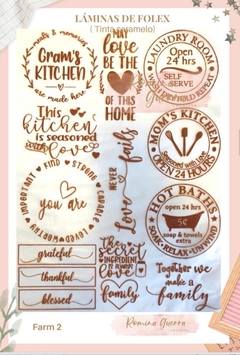 LÁMINAS DE FOLEX
( Tinta caramelo)
meals & memories
Gram's
KITCHEN
are made here
love
BE THE
OF THIS
HOME
LAUNDRY ROOM
Open
24 hrs
SELF
SERVE
WASH DRY FOLD HANG REPEAT
This
kitchen
is seasoned
with love
Love never fails
MOM'S KITCHEN
Seasoned with Love
OPEN 24 HOURS
KIND STRONG CAPABLE LOVED WORTHY IMPORTANT
you are
HOT BATHS
open 24 hrs
5¢
soap & towels
extra
SOAK·RELAX·UNWIND
grateful
thankful
blessed
The
Secret
INGREDIENT
is always
love
family
Together we
make a
family
Farm 2
Romina Guerra